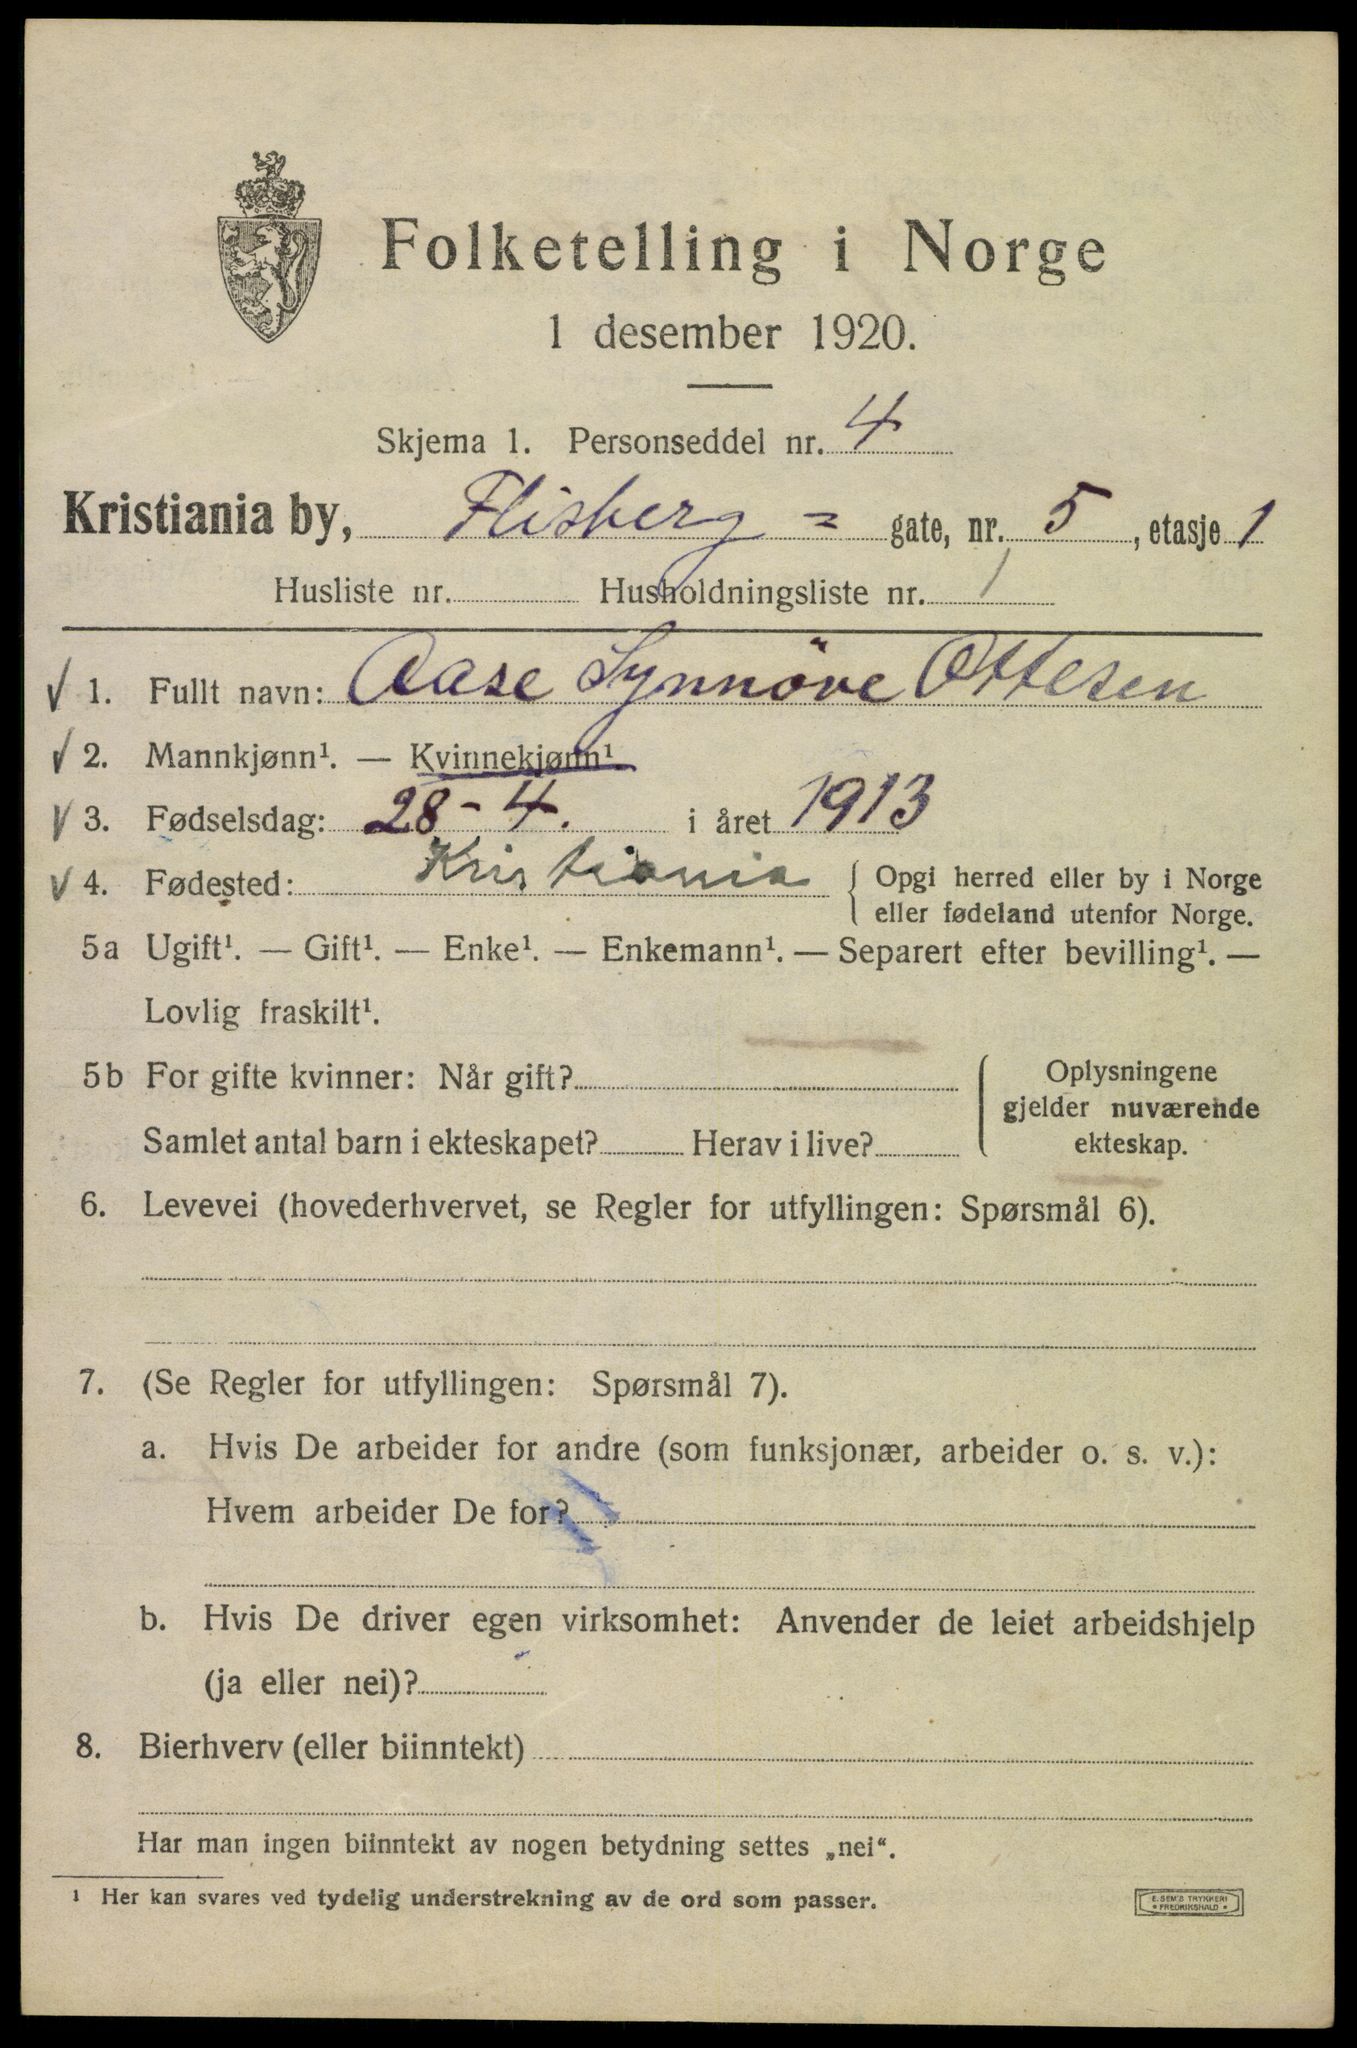 Folketelling i Norge
1 desember 1920.
Skjema 1. Personseddel nr. 4
Kristiania by, Flisberg = gate, nr. 5, etasje 1
Husliste nr. Husholdningsliste nr. 1
√ 1. Fullt navn: Aase Synnöve Ottesen
√ 2. Mannkjønn¹. — Kvinnekjønn¹.
√ 3. Fødselsdag: 28 - 4. i året 1913
√ 4. Fødested: Kristiania { Opgi herred eller by i Norge
eller fødeland utenfor Norge.
5a Ugift¹. — Gift¹. — Enke¹. — Enkemann¹. — Separert efter bevilling¹. —
Lovlig fraskilt¹.
5b For gifte kvinner: Når gift?
Samlet antal barn i ekteskapet? Herav i live?
{ Oplysningene
gjelder nuværende
ekteskap.
6. Levevei (hovederhvervet, se Regler for utfyllingen: Spørsmål 6).
7. (Se Regler for utfyllingen: Spørsmål 7).
a. Hvis De arbeider for andre (som funksjonær, arbeider o. s. v.):
Hvem arbeider De for?
b. Hvis De driver egen virksomhet: Anvender de leiet arbeidshjelp
(ja eller nei)?
8. Bierhverv (eller biinntekt)
Har man ingen biinntekt av nogen betydning settes „nei“.
¹ Her kan svares ved tydelig understrekning av de ord som passer.
E. SEM'S TRYKKERI
* FREDRIKSHALD *